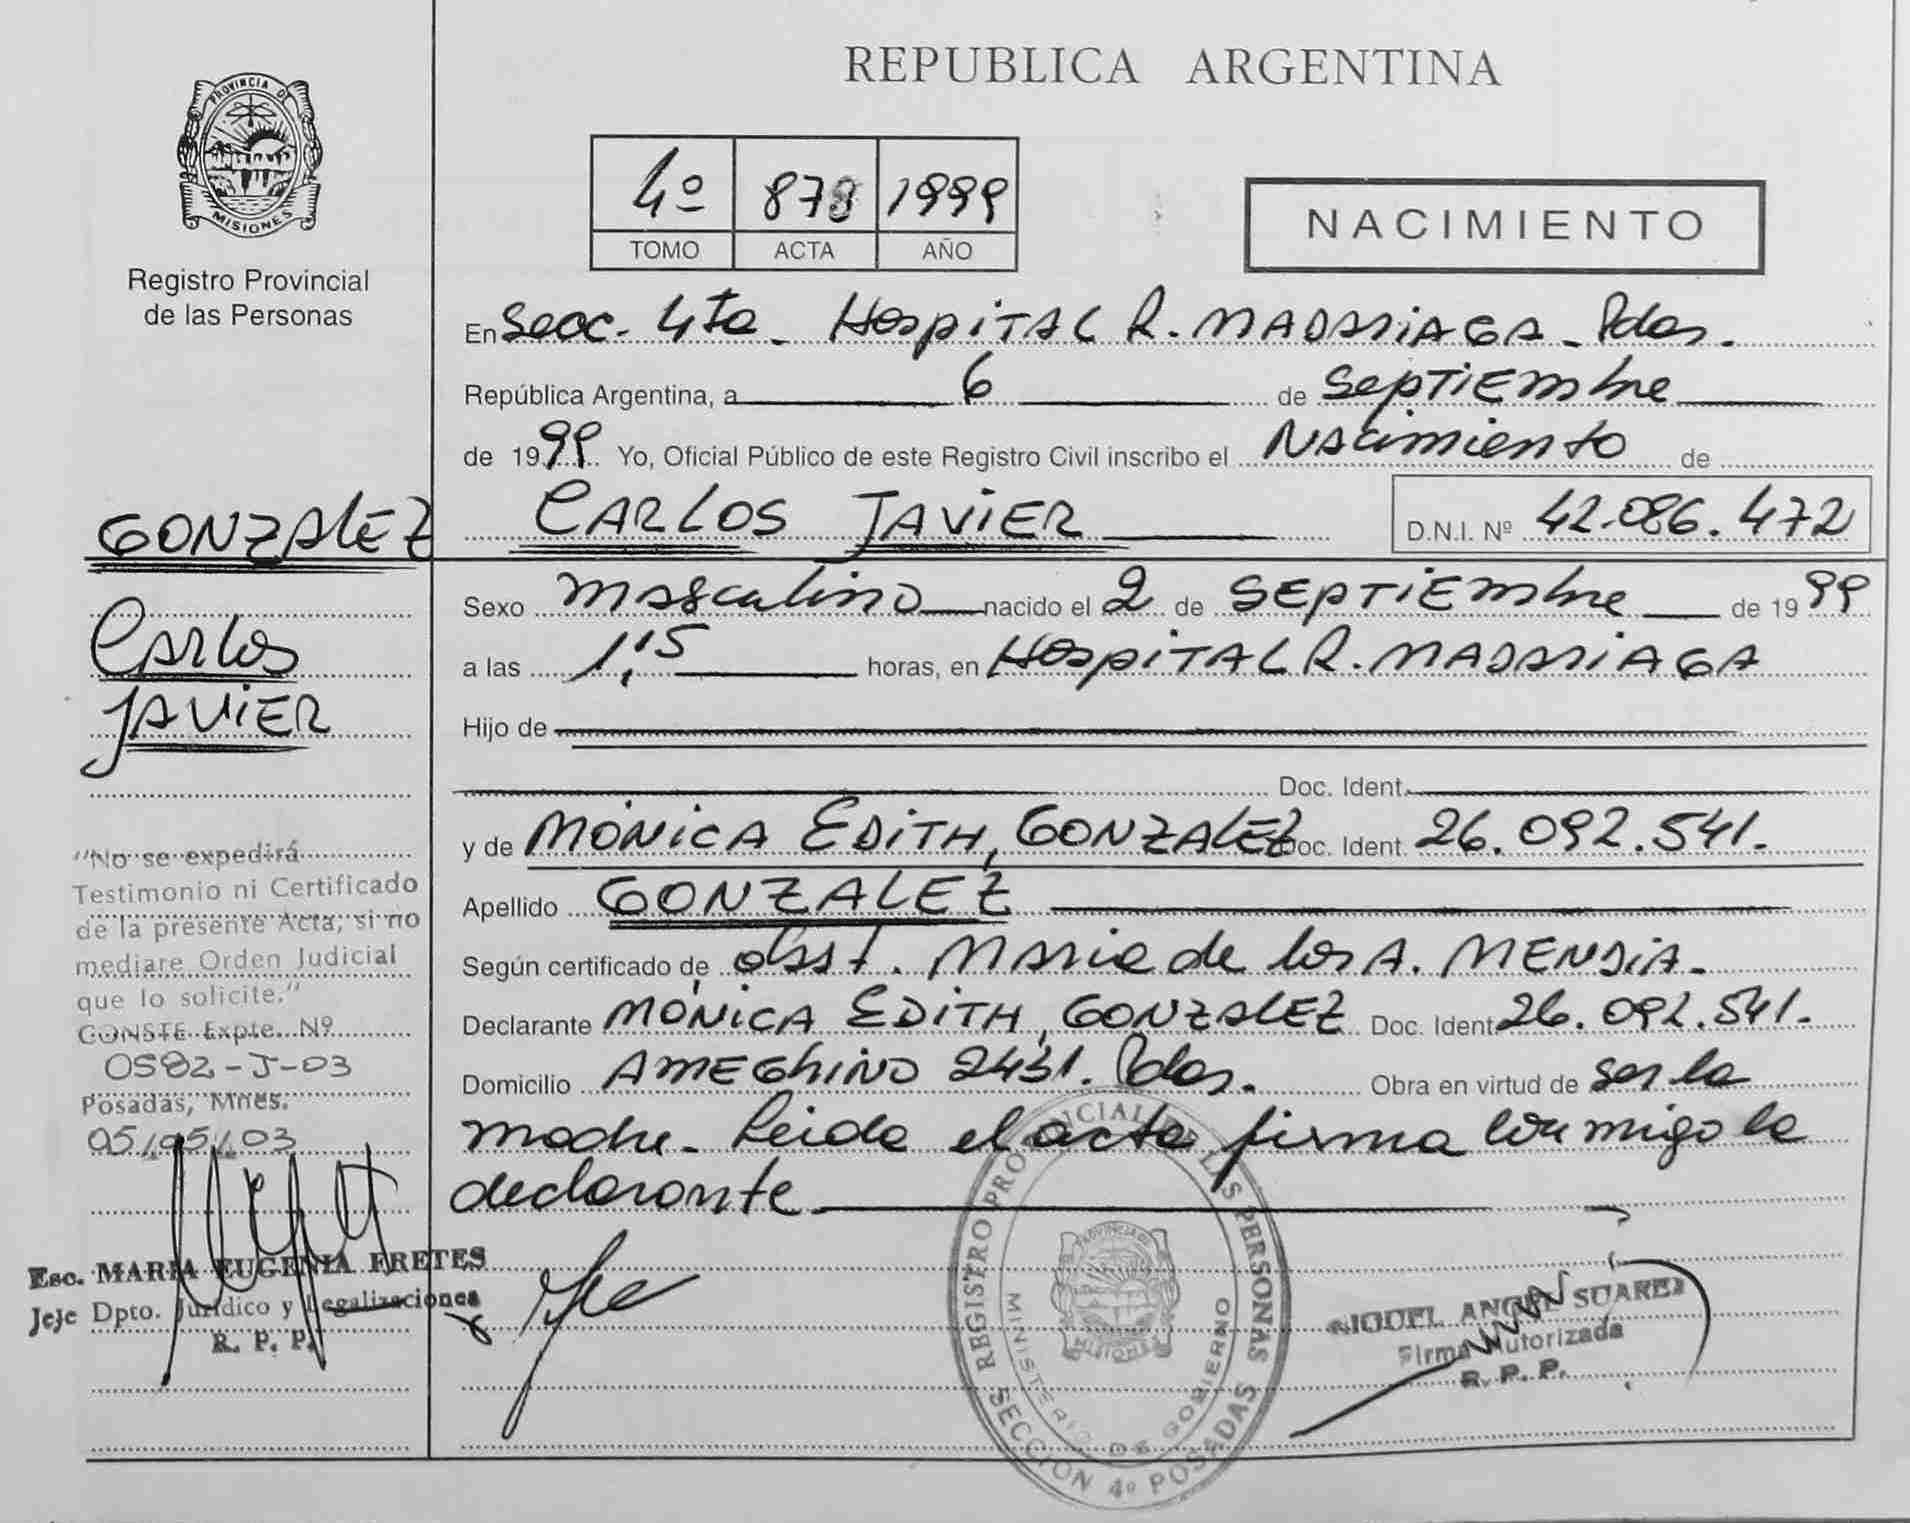 REPUBLICA ARGENTINA
PROVINCIA DE
MISIONES
Registro Provincial
de las Personas
4º 1999
TOMO ACTA AÑO
NACIMIENTO
En Secc. 4ta. Hospital R. MADARIAGA - Pdas.
República Argentina, a 6 de Septiembre
de 1999 Yo, Oficial Público de este Registro Civil inscribo el Nacimiento de
CARLOS JAVIER D.N.I. Nº 42.086.472
Sexo masculino nacido el 2 de SEPTIEMbre de 1999
a las 1,15 horas, en Hospital R. MADARIAGA
Hijo de
Doc. Ident.
y de MÓNICA EDITH, GONZALEZ Doc. Ident. 26.092.541.
Apellido GONZALEZ
Según certificado de obst. Maria de los A. MENDIA.
Declarante MÓNICA EDITH, GONZALEZ Doc. Ident 26.092.541.
Domicilio AMEGHINO 2431. Pdas. Obra en virtud de ser la
madre - Leida el acta firma conmigo la
declarante
GONZALEZ
Carlos
JAVIER
"No se expedirá
Testimonio ni Certificado
de la presente Acta, si no
mediare Orden Judicial
que lo solicite."
CONSTE Expte. Nº
0582-J-03
Posadas, Mnes.
05/05/03
Esc. MARIA EUGENIA FRETES
Jefe Dpto. Jurídico y Legalizaciones
R. P. P.
REGISTRO PROVINCIAL DE LAS PERSONAS
MINISTERIO DE GOBIERNO
PROVINCIA DE
MISIONES
SECCION 4º POSADAS
MIGUEL ANGEL SUAREZ
Firma Autorizada
R. P. P.